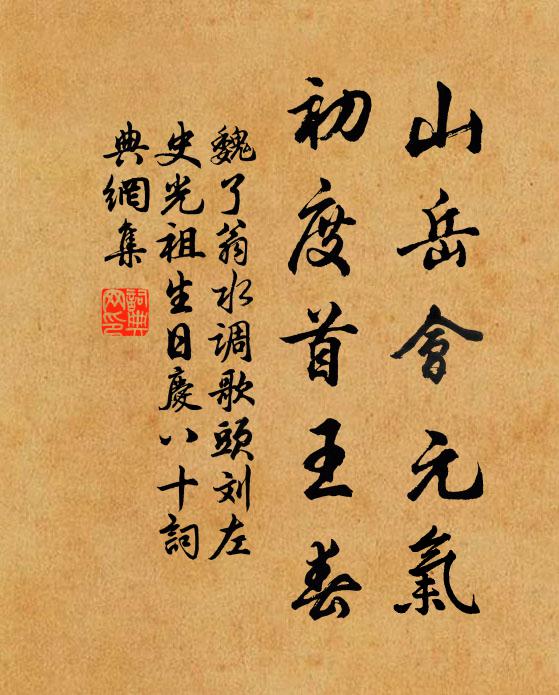 山岳會元氣
初度首王春
魏了翁水调歌頭刘左
史光祖生日慶八十詞
典網集
詞典
网印